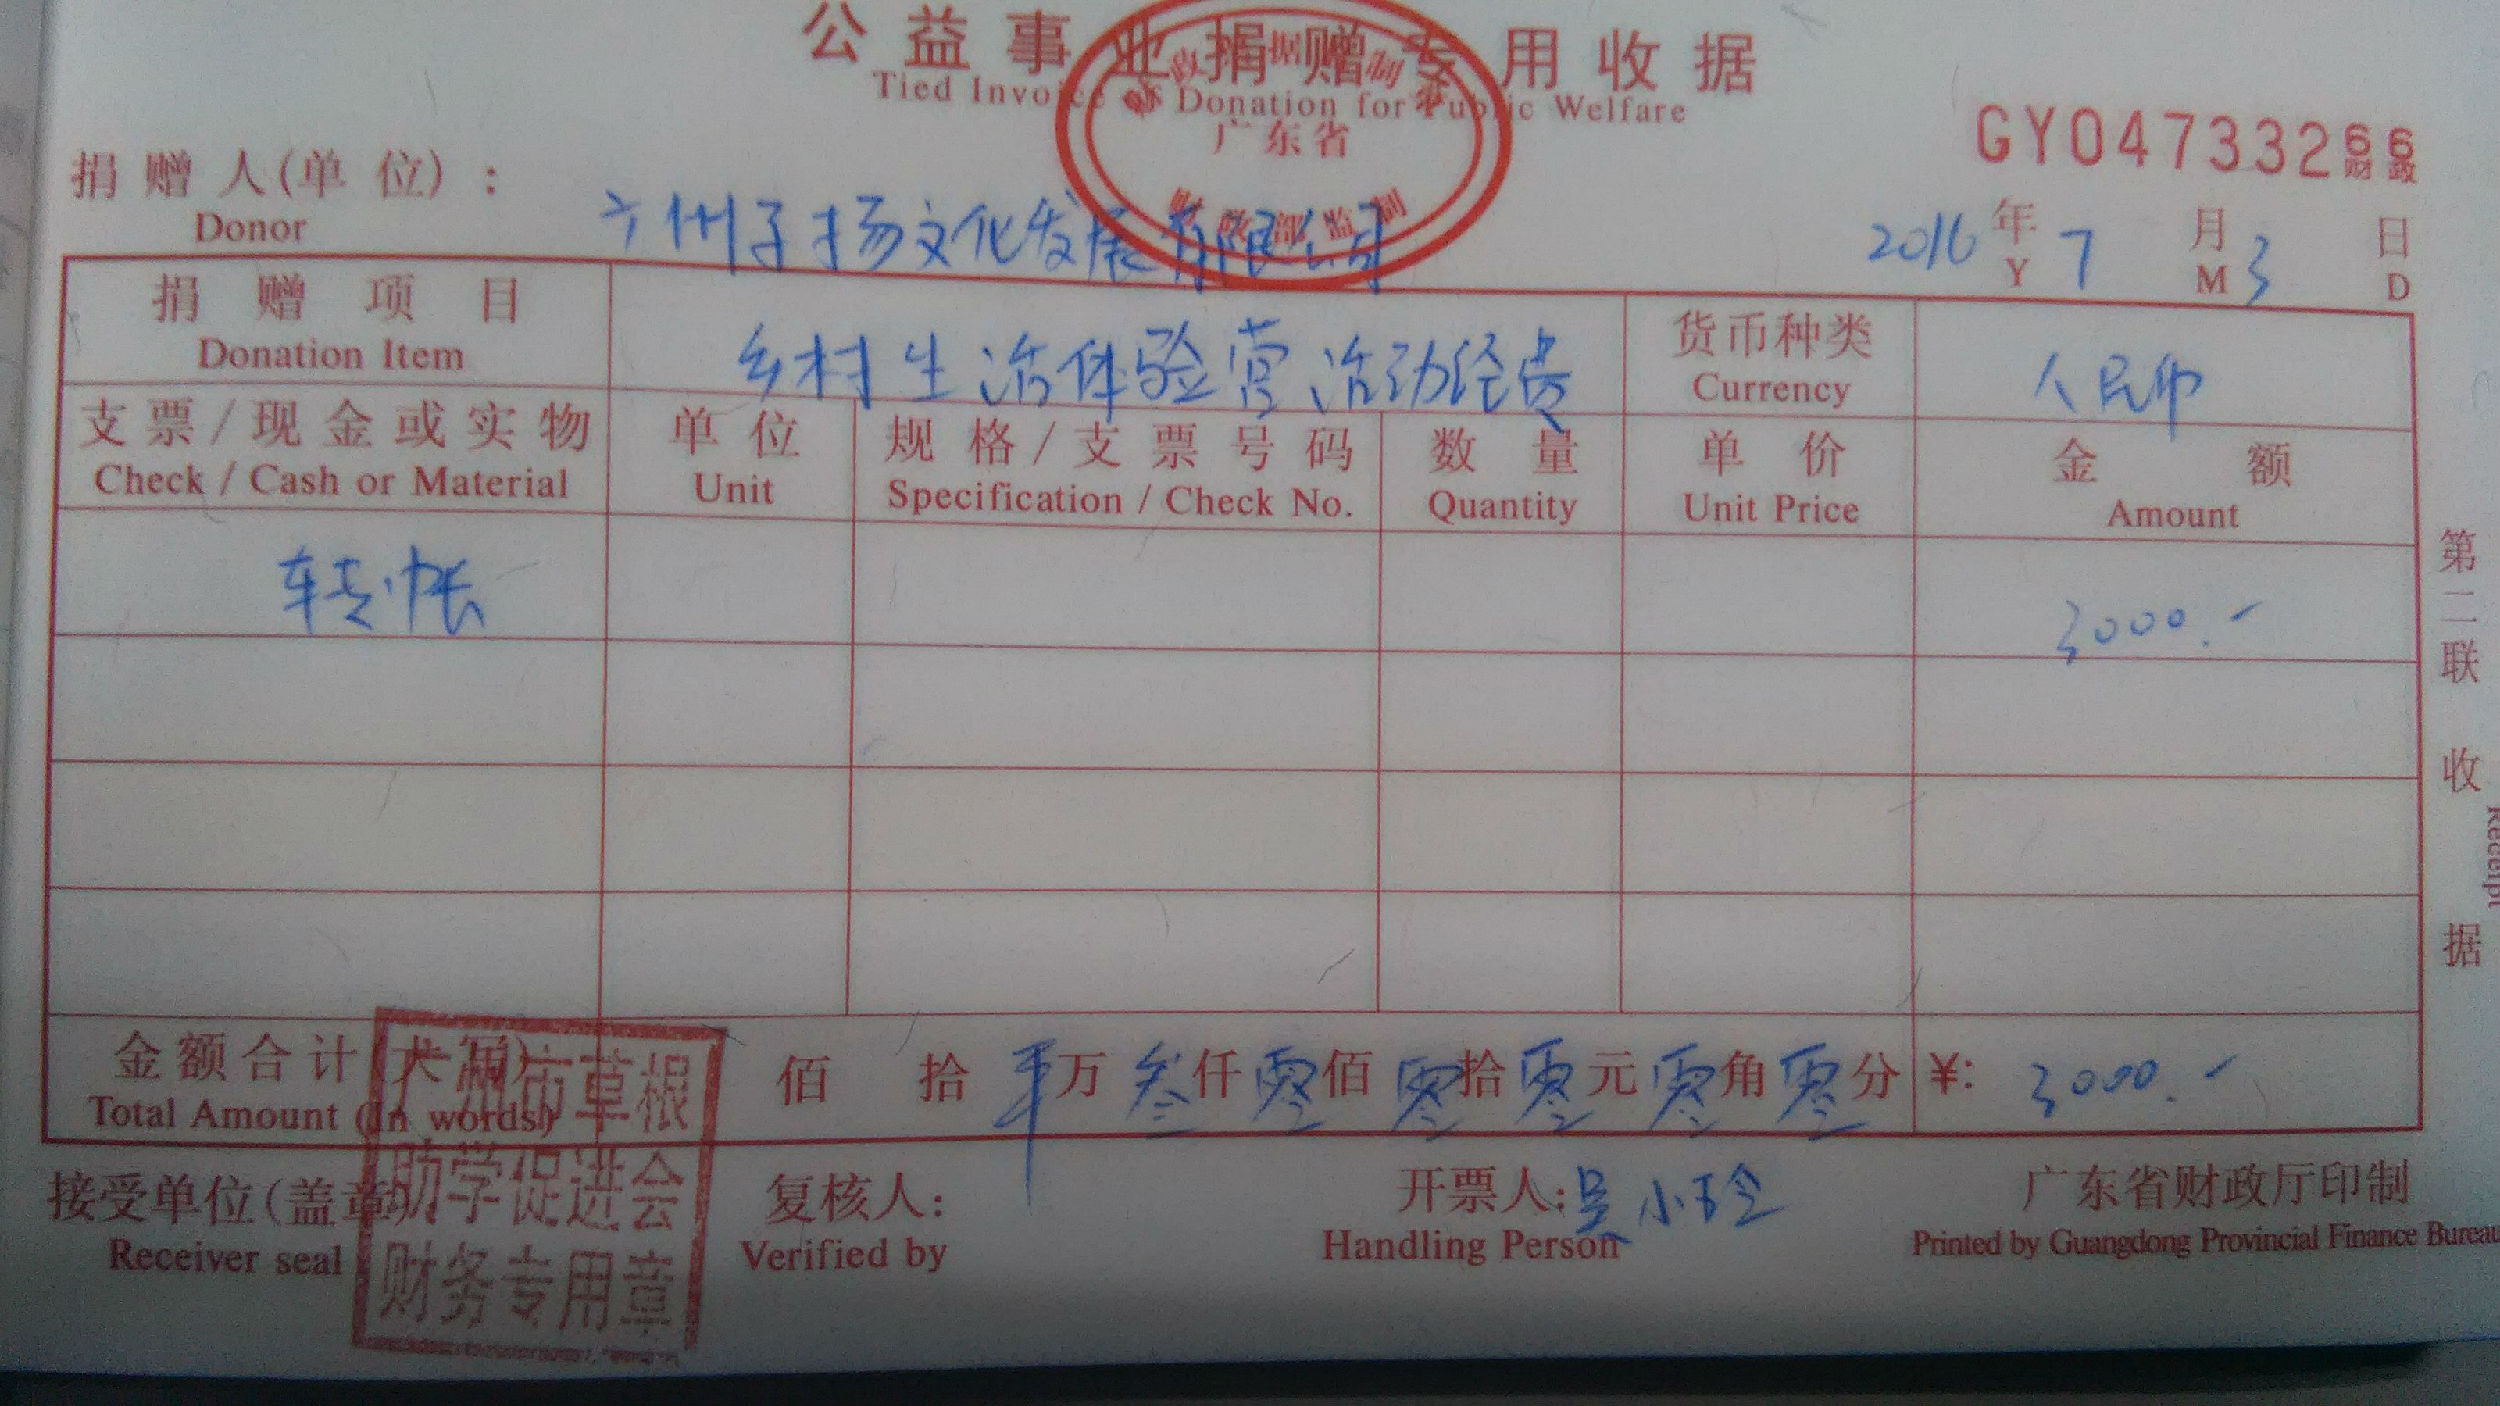 公益事业捐赠专用收据
Tied Invoice of Donation for Public Welfare
广东省
GY04733266
财政
捐赠人(单位):
Donor
广州子扬文化发展有限公司
2016年7月3日
Y M D
捐赠项目
Donation Item
乡村生活体验营活动经费
货币种类
Currency
人民币
支票/现金或实物
Check / Cash or Material
单位
Unit
规格/支票号码
Specification / Check No.
数量
Quantity
单价
Unit Price
金额
Amount
转帐
3000.-
第二联 收据
Receipt
金额合计(大写)
Total Amount (In words)
佰 拾 万叁仟零佰零拾零元零角零分
¥: 3000.-
广州市草根
助学促进会
财务专用章
接受单位(盖章)
Receiver seal
复核人:
Verified by
开票人:吴小玲
Handling Person
广东省财政厅印制
Printed by Guangdong Provincial Finance Bureau